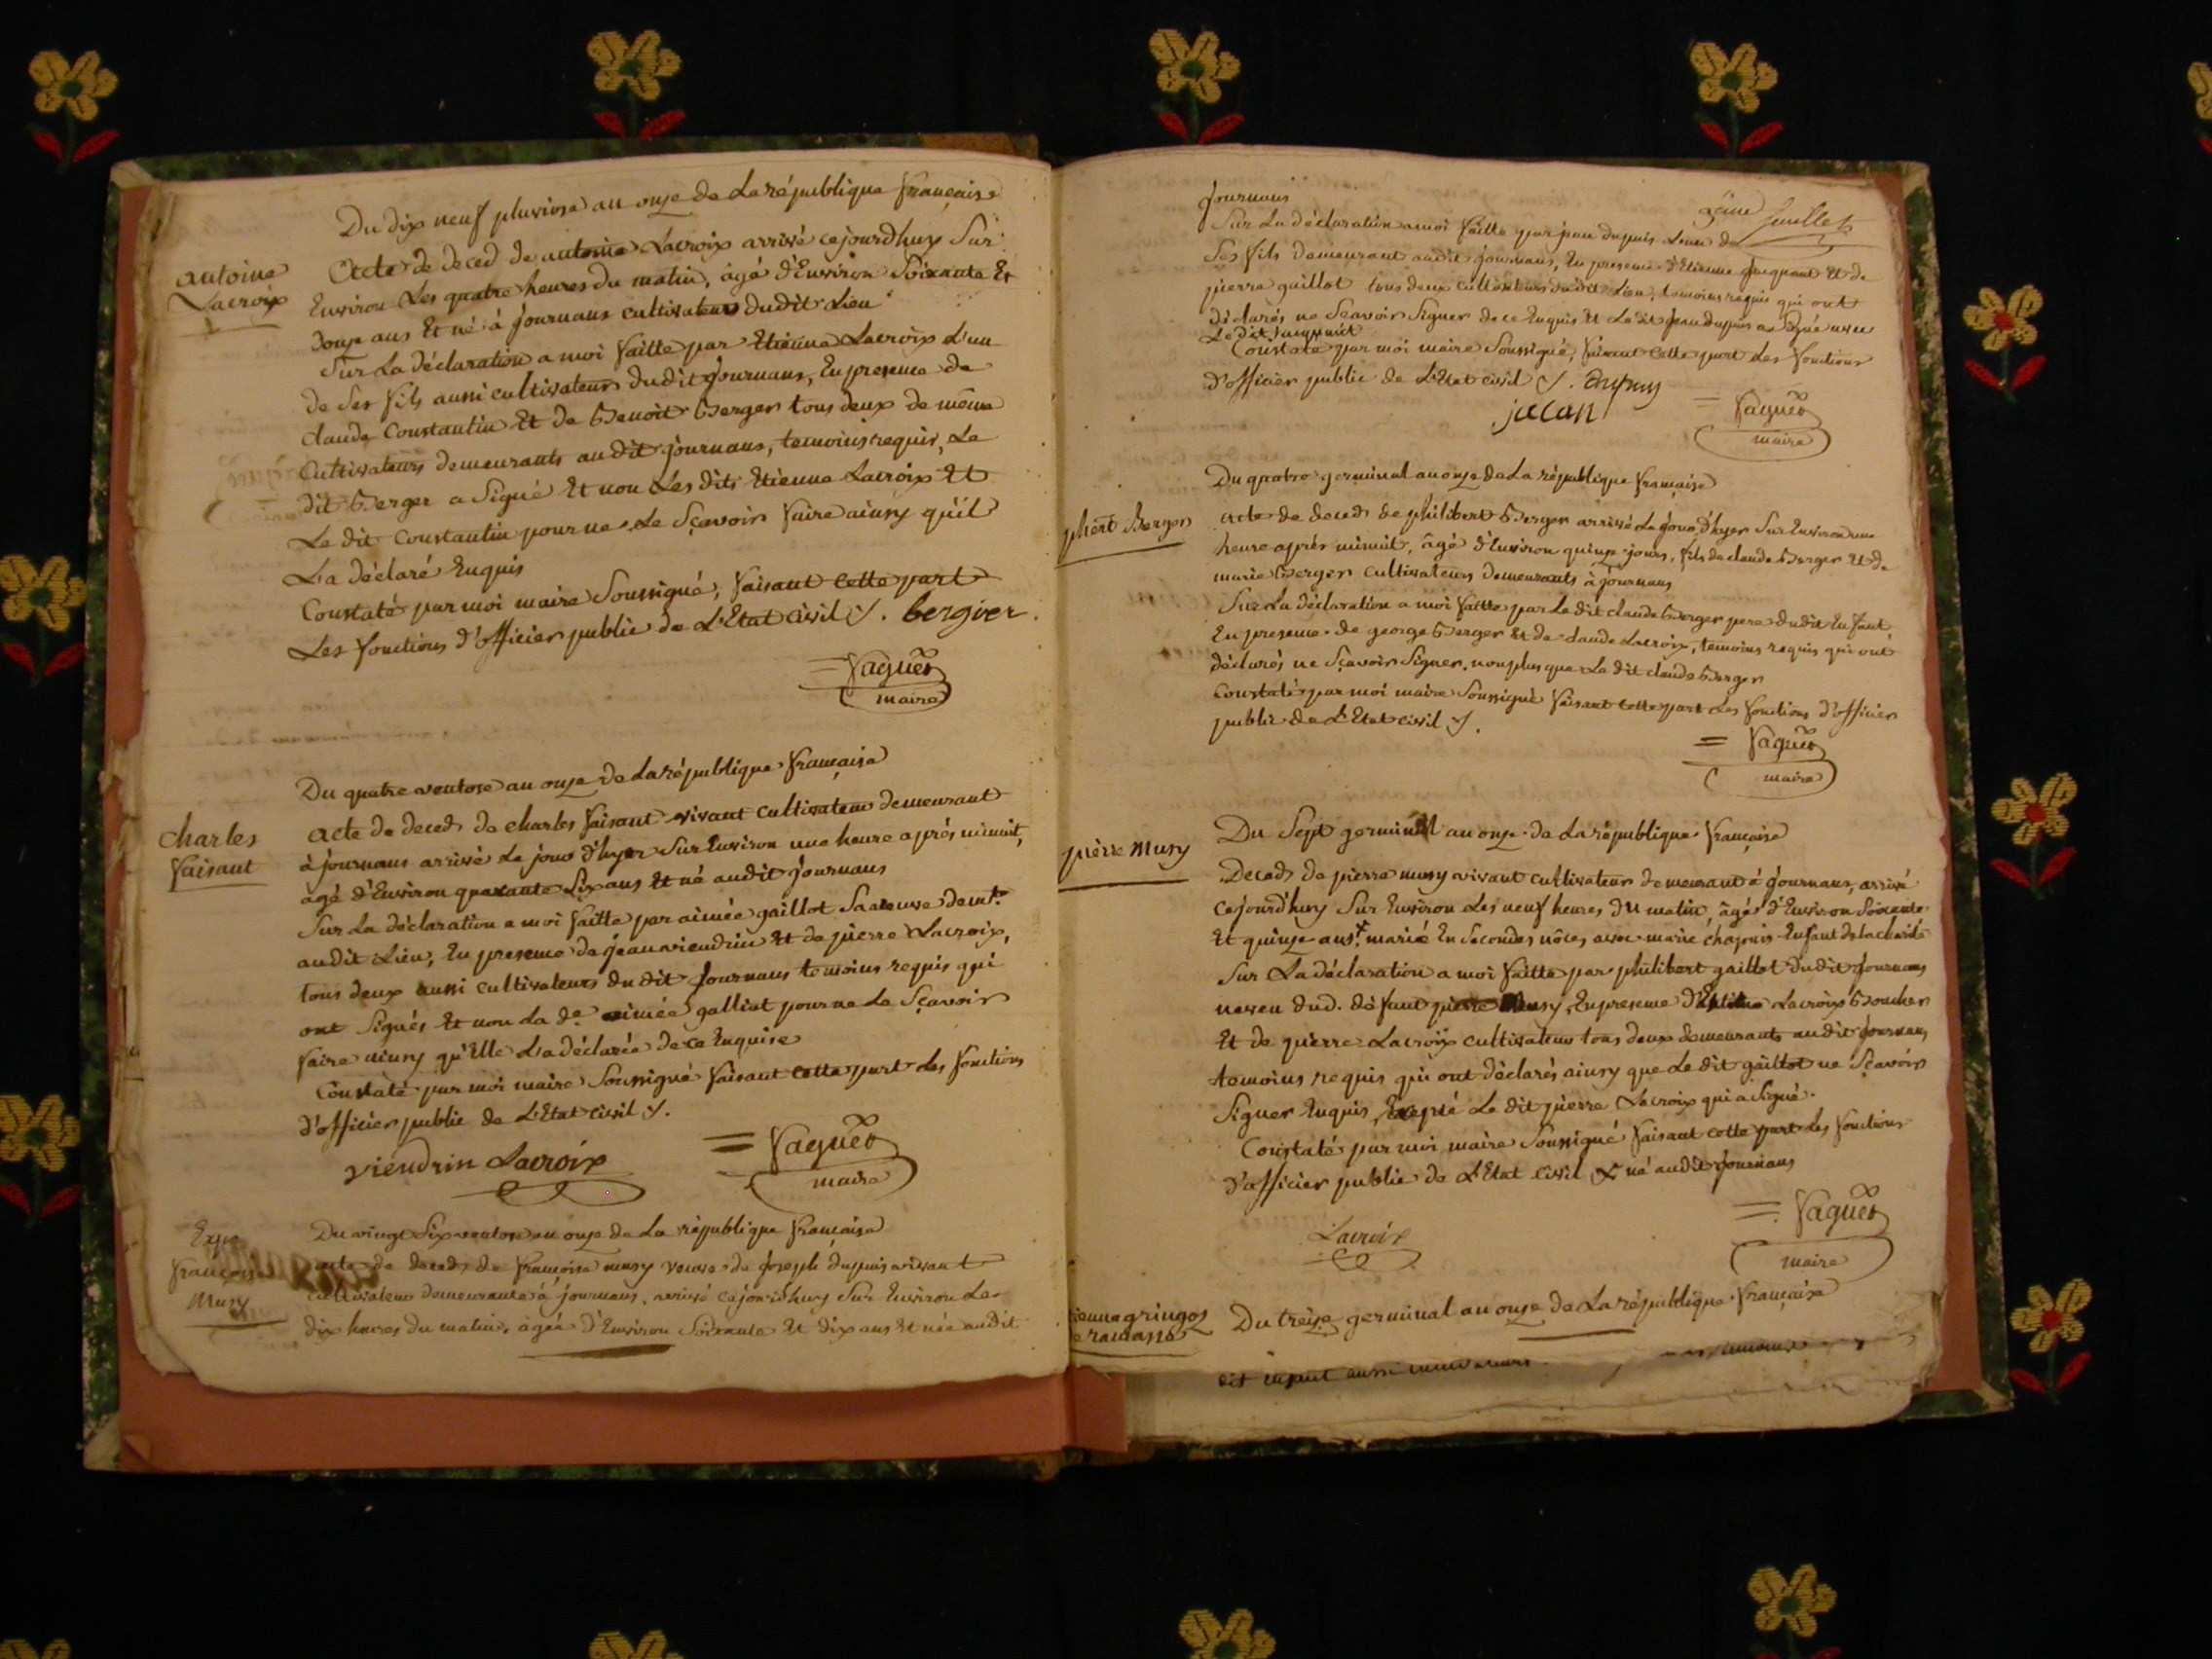 Du dix neuf pluviose an onze de La république française
antoine
Lacroix
Acte de deced de antoine Lacroix arrivé cejourdhuy Sur
Environ Les quatre heures du matin, âgé d'Environ Soixante Et
douze ans Et né à journans cultivateur dudit Lieu
Sur La déclaration a moi faitte par Etienne Lacroix L'un
de Ses fils aussi cultivateur dudit journans, En presence de
claude Constantin Et de Benoit Berger tous deux de même
Cultivateurs demeurants audit journans, temoins requis, Le
dit Berger a Signé Et non Les dits Etienne Lacroix Et
Le dit Constantin pour ne Le Sçavoir faire ainsy qu'il
L'a déclaré Enquis
Constaté par moi maire Soussigné, faisant cette part
Les fonctions d'officier public de L'Etat Civil ./. bergier
= Vaguet
maire
Du quatre ventose an onze de La république française
charles
faisant
acte de deced de charles faisant vivant cultivateur demeurant
à journans arrivé Le jour d'hyer Sur Environ une heure après minuit,
agé d'Environ quarante Six ans Et né audit journans
Sur La déclaration a moi faitte par aimée gaillot Sa veuve demt.
audit Lieu, En presence de jean viendrin Et de pierre Lacroix,
tous deux aussi cultivateurs dudit journans temoins requis qui
ont Signés Et non La de. aimée galliot pour ne Le Sçavoir
faire ainsy qu'Elle L'a déclarée de ce Enquise
Constaté par moi maire Soussigné faisant cette part Les fonctions
d'officier public de L'Etat civil ./.
viendrin Lacroix
= Vaguet
maire
françoise
Musy
Du vingt Six ventose an onze de La république française
acte de deced de françoise musy veuve de joseph dupuis vivant
cultivateur demeurante à journans, arrivé cejourdhuy Sur Environ Les
dix heures du matin, agée d'Environ Soixante Et dix ans Et née audit
journans
feuillet
Sur La déclaration a moi faitte par jean dupuis L'un de
Ses fils demeurant audit journans, En presence d'Etienne jacquant Et de
pierre guillot tous deux cultivateurs dudit Lieu, temoins requis qui ont
déclarés ne Sçavoir Signer de ce Enquis Et Le dit jean dupuis a Signé avec
Le dit jacquant
Constaté par moi maire Soussigné, faisant Cette part Les fonctions
d'officier public de L'Etat civil ./. Dupuy
jacan
= Vaguet
maire
Du quatre germinal an onze de La république française
phert Berger
acte de deced de philibert Berger arrivé Le jour d'hyer Sur Environ une
heure après minuit, âgé d'Environ quinze jours, fils de claude Berger Et de
marie Berger cultivateurs demeurants à journans
Sur La déclaration a moi faitte par Le dit claude Berger pere dudit Enfant
En presence de george Berger Et de claude Lacroix, temoins requis qui ont
déclarés ne Sçavoir Signer, non plus que Le dit claude Berger
Constaté par moi maire Soussigné faisant cette part Les fonctions d'officier
public de L'Etat civil ./.
= Vaguet
maire
Du Sept germinal an onze de La république française
pierre Musy
Deced de pierre musy vivant cultivateur demeurant à journans, arrivé
cejourd'huy Sur Environ Les neuf heures du matin, âgé d'Environ Soixante
Et quinze ans marié En Secondes nôces avec marie chapuis Enfant de la charité
Sur La déclaration a moi faitte par philibert gaillot dudit journans
neveu dud. défaunt pierre Musy, En presence d'Etienne Lacroix Boucher
Et de pierre Lacroix cultivateur tous deux demeurants audit journans
temoins requis qui ont déclarés ainsy que Le dit gaillot ne Sçavoir
Signer Enquis, Excepté Le dit pierre Lacroix qui a Signé.
Constaté par moi maire Soussigné faisant cette part Les fonctions
d'officier public de L'Etat civil & né audit journans
Lacroix
= Vaguet
maire
Du treize germinal an onze de La république française